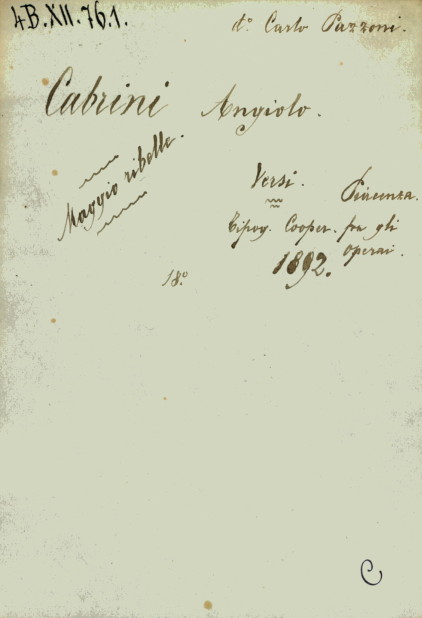 4B.XII.76.1.
d.º Carlo Pazzoni.
Cabrini Angiolo.
Maggio ribelle.
Versi. Piacenza.
Tipog. Cooper. fra gli
operai.
18.º 1892.
C